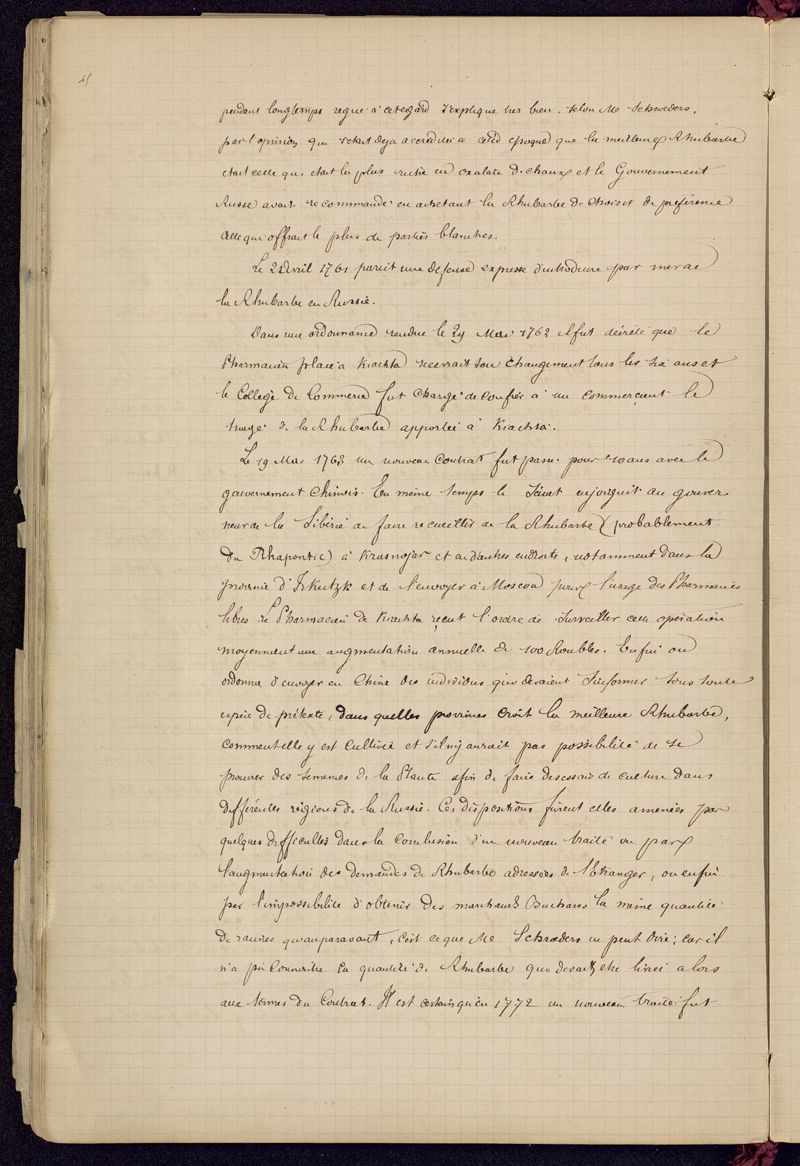 45
pendant longtemps régné à cet égard s'explique très bien, selon Mr Schroeders,
par l'opinion qui s'était déjà accréditée à cette époque que la meilleure Rhubarbe
était celle qui était la plus riche en oxalate de chaux et le Gouvernement
Russe avait recommandé en achetant la Rhubarbe de choisir de préférence
celle qui offrait le plus de parties blanches.
Le 2 Avril 1761 parut une défense expresse d'introduire par mer de
la Rhubarbe en Russie.
Dans une ordonnance rendue le 29 Mai 1762 il fut décrété que le
Pharmacien placé à Kiachta recevrait son changement tous les six ans et
le Collège de Commerce fut chargé de confier à un commerçant le
triage de la Rhubarbe apportée à Kiachta.
Le 19 Mai 1763 un nouveau contrat fut passé pour 10 ans avec le
gouvernement Chinois. En même temps le Sénat enjoignit au gouver
neur de la Sibérie de faire recueillir de la Rhubarbe (probablement
du Rhapontic) à Krasnojar et en d'autres endroits, notamment dans la
province d'Irkutzk et de l'envoyer à Moscou pour l'usage des Pharmacies
libres. Le Pharmacien de Kiachta reçut l'ordre de surveiller cette opération
moyennant une augmentation annuelle de 100 Roubles. Enfin on
ordonna d'envoyer en Chine des individus qui devaient s'informer sous toute
espèce de prétexte, dans quelles provinces croît la meilleure Rhubarbe,
comment elle y est cultivée et s'il n'y aurait pas possibilité de se
procurer des semences de la Plante afin de faire des essais de culture dans
différentes régions de la Russie. Ces dispositions furent elles amenées par
quelques difficultés dans la conclusion d'un nouveau traité ou par
l'augmentation des demandes de Rhubarbe adressées de l'Etranger, ou enfin
par l'impossibilité d'obtenir des marchands Buchares la même quantité
de racines qu'auparavant, c'est ce que Mr Schrœders ne peut dire; car il
n'a pu connaître la quantité de Rhubarbe qui devait être livrée alors
aux termes du Contrat. Il est certain qu'en 1772 un nouveau traité fut